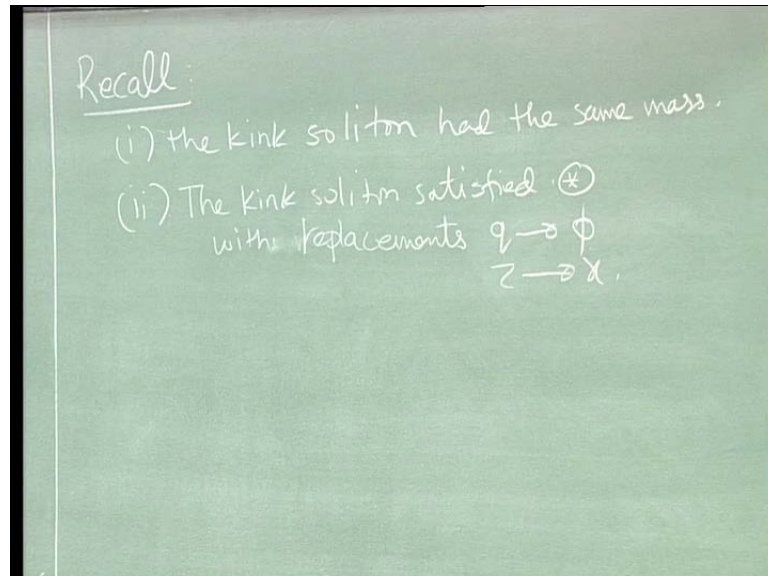 Recall:
(i) the kink soliton had the same mass.
(ii) The kink soliton satisfied ⊛
with replacements q → ϕ
τ → x.